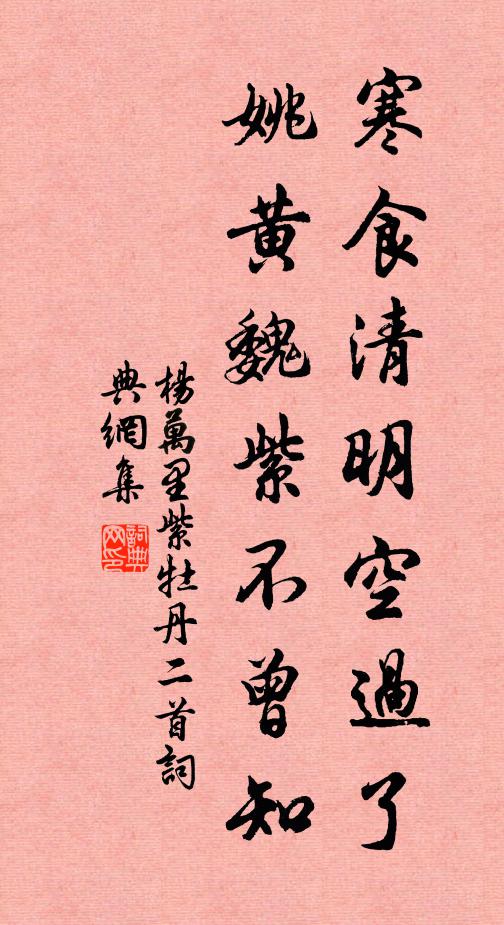 寒食清明空過了
姚黃魏紫不曾知
楊萬里紫牡丹二首詞
典網集
詞典
网印